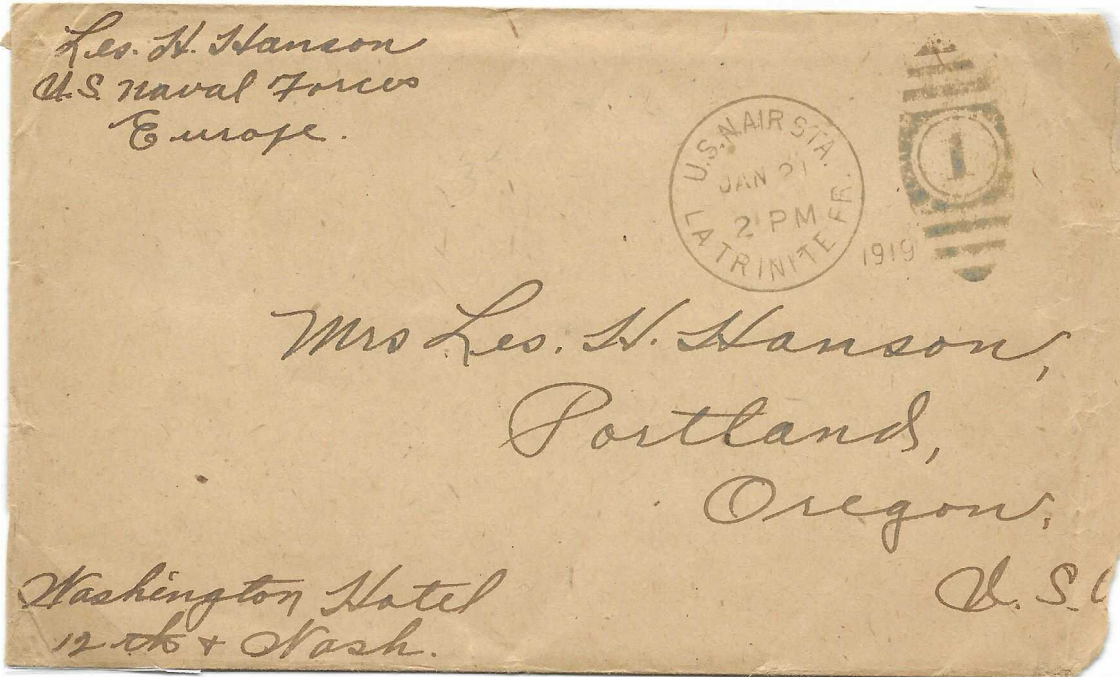 Les. H. Hanson
U.S. Naval Forces
Europe.
U.S.N. AIR STA.
JAN 21
2 PM
LA TRINITE FR.
1919
1
Mrs Les. H. Hanson,
Portland,
Oregon.
U.S.
Washington Hotel
12th & Wash.